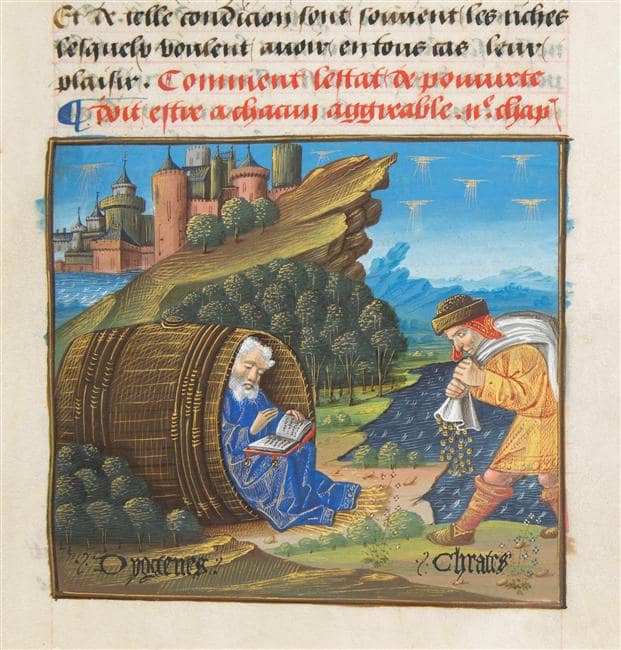 Et de telle condicion sont souuent les riches
lesquelz veulent auoir en tous cas leur
plaisir. Comment lestat de pouurete
¶ doit estre a chacun aggreable. iiº. chap
Dyogenes.
Chrates